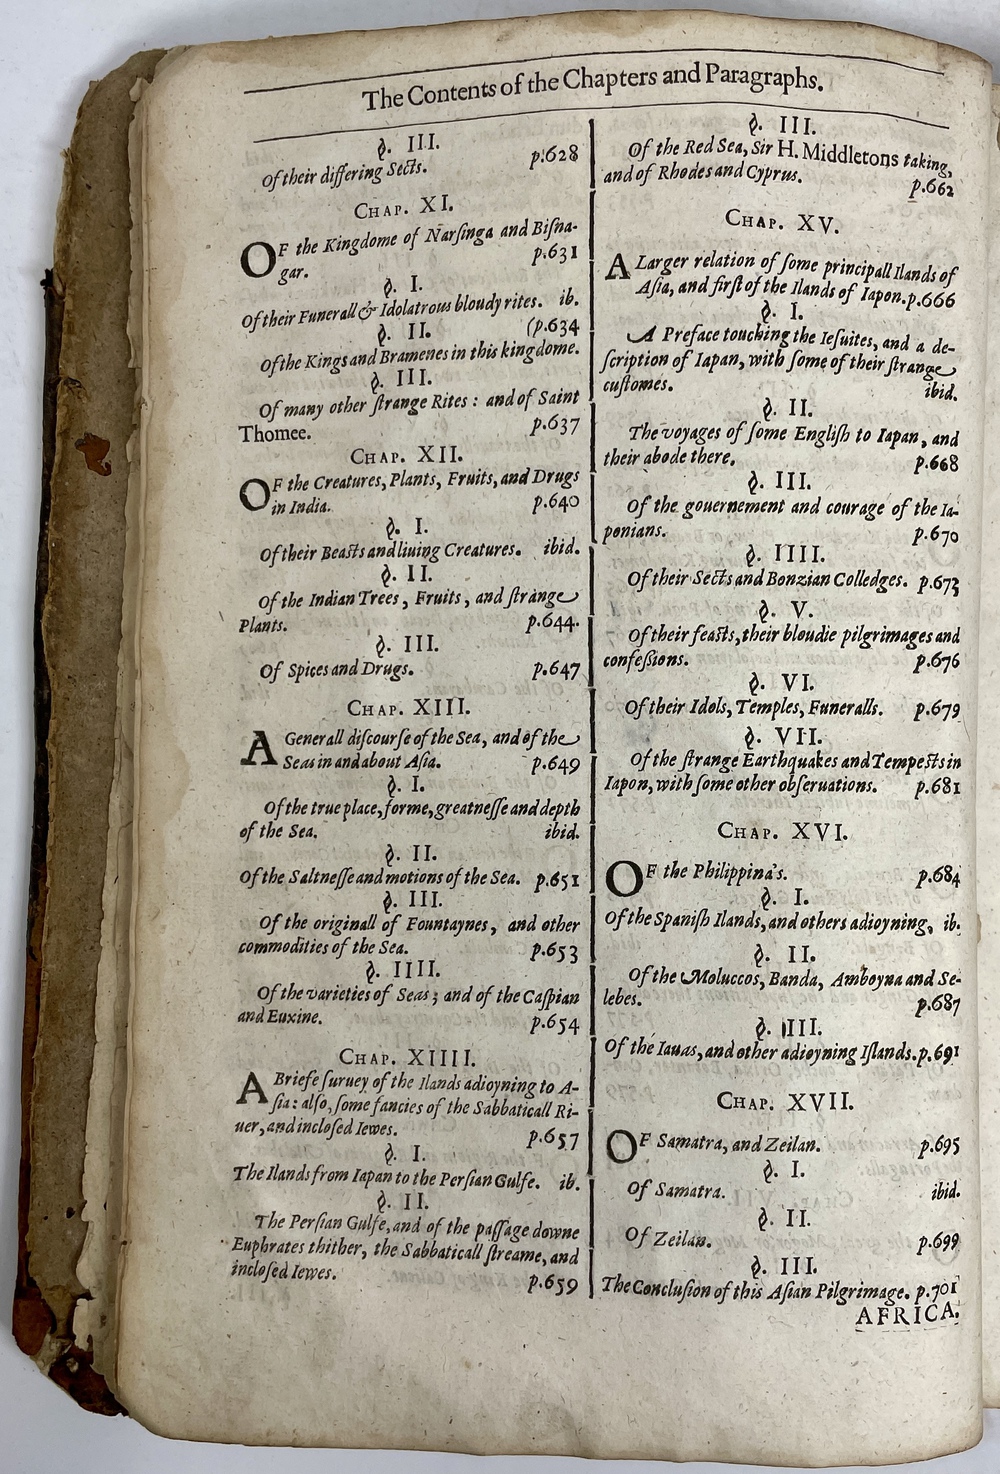 The Contents of the Chapters and Paragraphs.
§. III.
Of their differing Sects. p.628
CHAP. XI.
OF the Kingdome of Narſinga and Biſna-
gar. p.631
§. I.
Of their Funerall & Idolatrous bloudy rites. ib.
§. II. (p.634
Of the Kings and Bramenes in this kingdome.
§. III.
Of many other ſtrange Rites: and of Saint
Thomee. p.637
CHAP. XII.
OF the Creatures, Plants, Fruits, and Drugs
in India. p.640
§. I.
Of their Beaſts and liuing Creatures. ibid.
§. II.
Of the Indian Trees, Fruits, and ſtrange
Plants. p.644.
§. III.
Of Spices and Drugs. p.647
CHAP. XIII.
A Generall diſcourſe of the Sea, and of the
Seas in and about Aſia. p.649
§. I.
Of the true place, forme, greatneſſe and depth
of the Sea. ibid.
§. II.
Of the Saltneſſe and motions of the Sea. p.651
§. III.
Of the originall of Fountaynes, and other
commodities of the Sea. p.653
§. IIII.
Of the varieties of Seas; and of the Caſpian
and Euxine. p.654
CHAP. XIIII.
A Briefe ſuruey of the Ilands adioyning to A-
ſia: alſo, ſome fancies of the Sabbaticall Ri-
uer, and incloſed Iewes. p.657
§. I.
The Ilands from Iapan to the Perſian Gulfe. ib.
§. II.
The Perſian Gulfe, and of the paſſage downe
Euphrates thither, the Sabbaticall ſtreame, and
incloſed Iewes. p.659
§. III.
Of the Red Sea, Sir H. Middletons taking,
and of Rhodes and Cyprus. p.662
CHAP. XV.
A Larger relation of ſome principall Ilands of
Aſia, and firſt of the Ilands of Iapon. p.666
§. I.
A Preface touching the Ieſuites, and a de-
ſcription of Iapan, with ſome of their ſtrange
cuſtomes. ibid.
§. II.
The voyages of ſome Engliſh to Iapan, and
their abode there. p.668
§. III.
Of the gouernement and courage of the Ia-
ponians. p.670
§. IIII.
Of their Sects and Bonzian Colledges. p.673
§. V.
Of their feaſts, their bloudie pilgrimages and
confeſſions. p.676
§. VI.
Of their Idols, Temples, Funeralls. p.679
§. VII.
Of the ſtrange Earthquakes and Tempeſts in
Iapon, with ſome other obſeruations. p.681
CHAP. XVI.
OF the Philippina's. p.684
§. I.
Of the Spaniſh Ilands, and others adioyning, ib.
§. II.
Of the Moluccos, Banda, Amboyna and Se-
lebes. p.687
§. III.
Of the Iauas, and other adioyning Iſlands. p.691
CHAP. XVII.
OF Samatra, and Zeilan. p.695
§. I.
Of Samatra. ibid.
§. II.
Of Zeilan. p.699
§. III.
The Concluſion of this Aſian Pilgrimage. p.701
AFRICA.